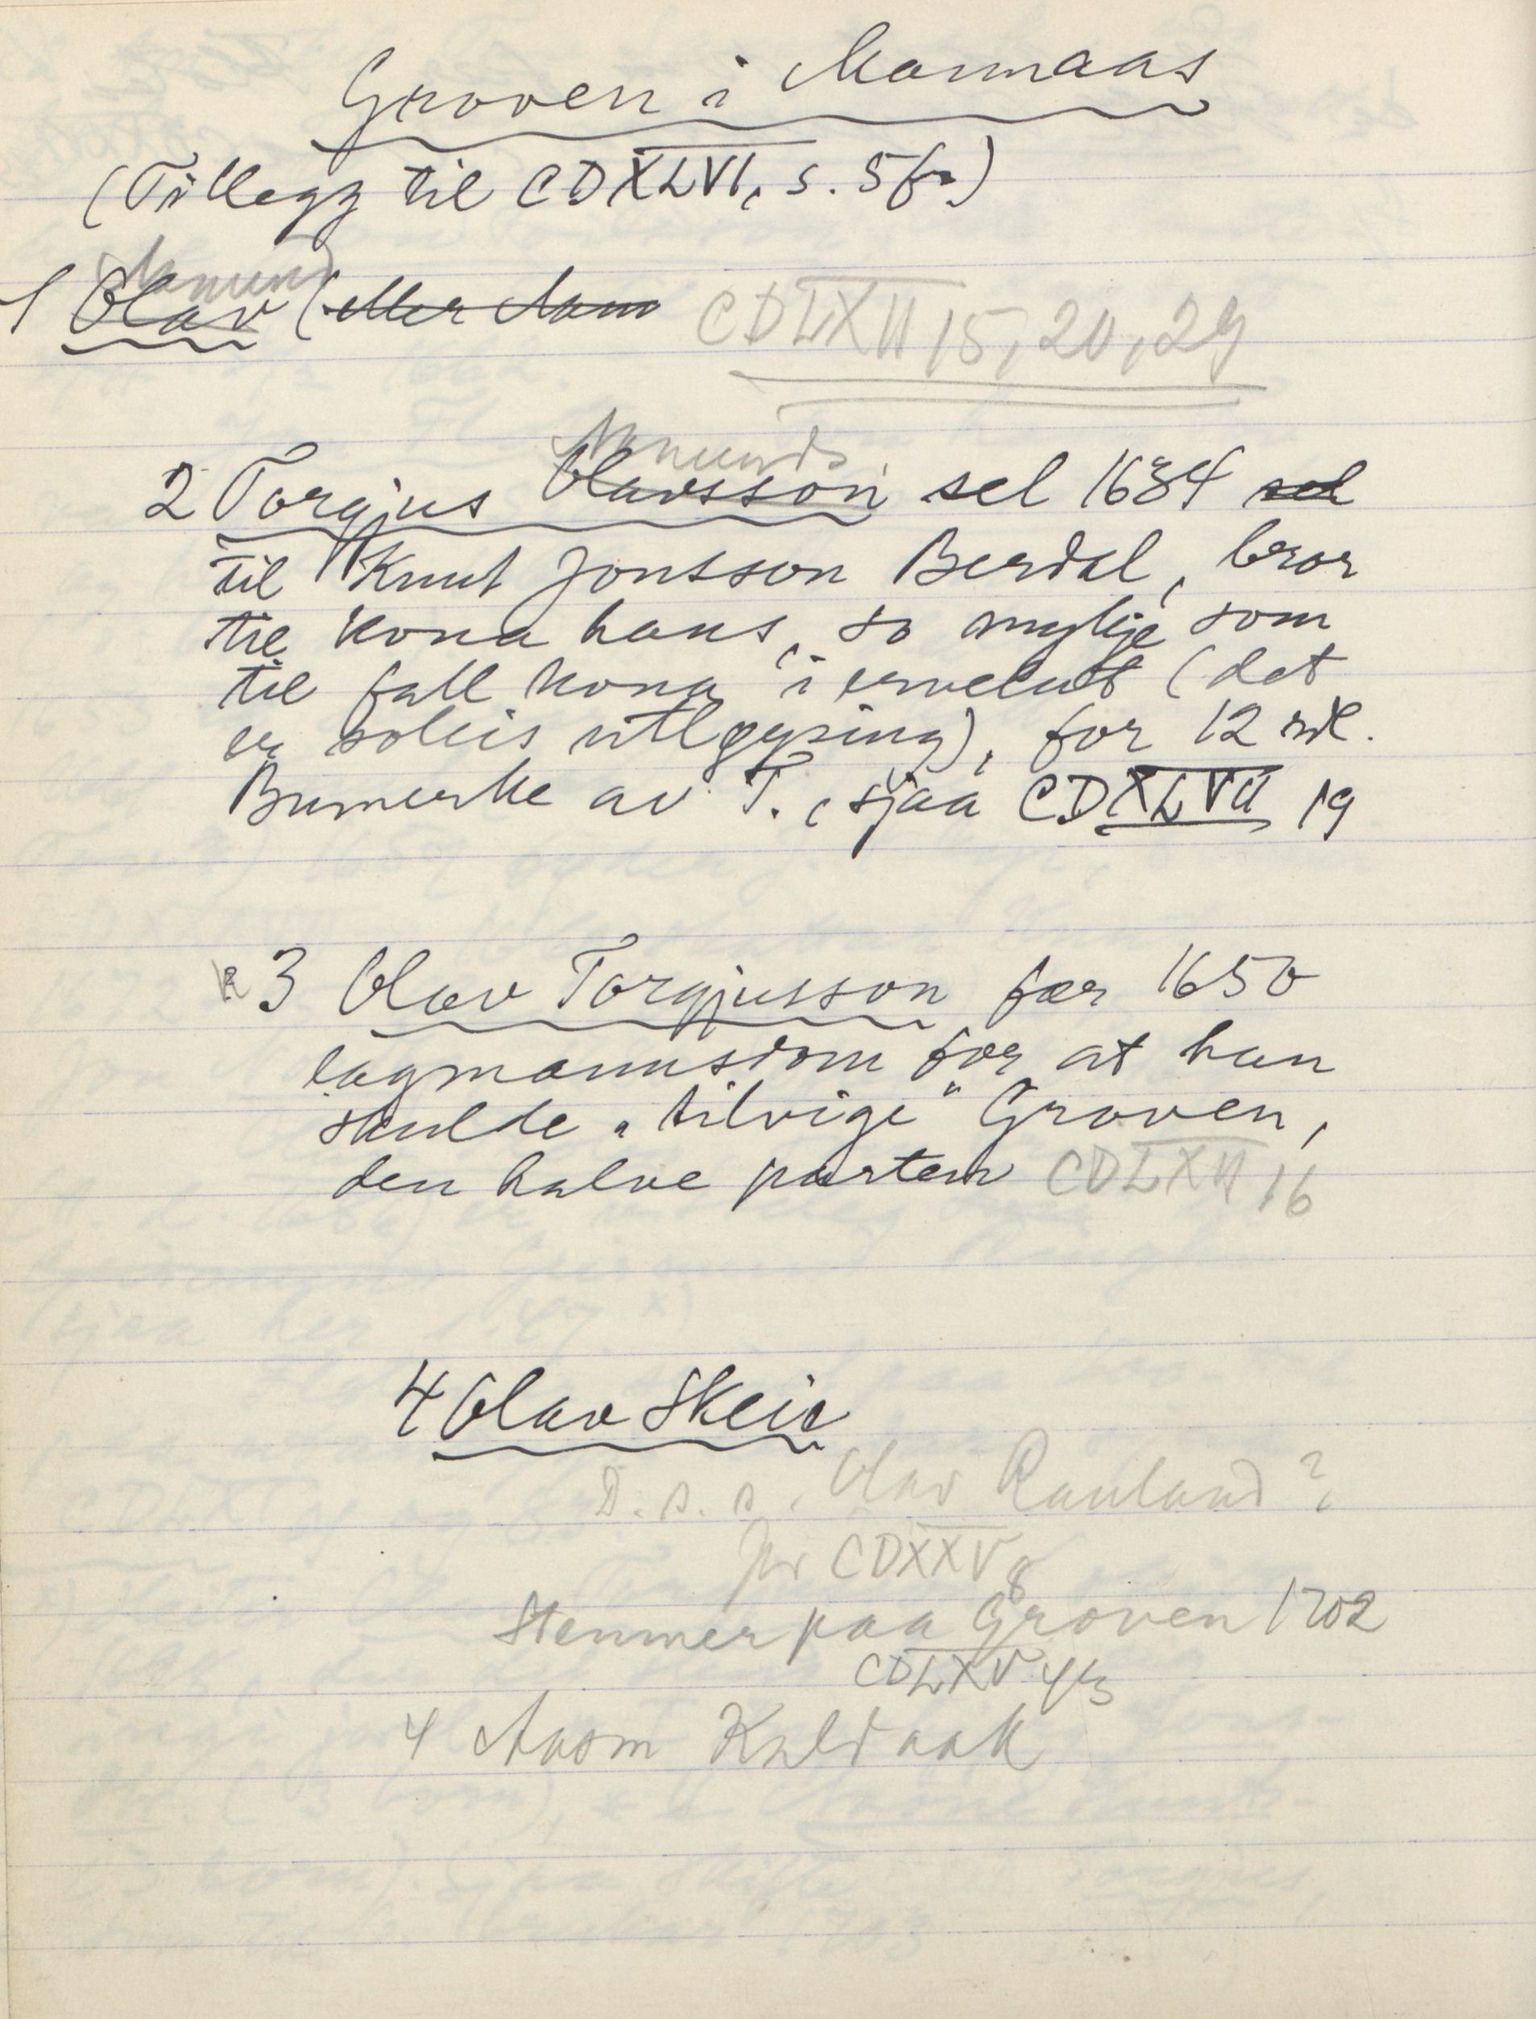 Groven i Mannaas
(Tillegg til CDXLVI, s. 5 fr)
Aamund
1 Olav (eller Aam CDLXII 15, 20, 29
Aamunds
2 Torgjus Olavsson sel 1634 sel
til Knut Jonsson Berdal, bror
til kona hans, so mykje som
til fall kona i ervelut (det
er soleis utløysing), for 12 rdl.
Bumerke av T., sjaa CDXLVII 19
3 Olav Torgjusson fær 1650
lagmannsdom for at han
skulde „tilvige“ Groven,
den halve parten CDLXII 16
4 Olav Skeie
D. s. s. Olav Rauland?
jvr CDXXV 8
Stemner paa Groven 1702
CDLXV 43
4 Aasm Kaldaak